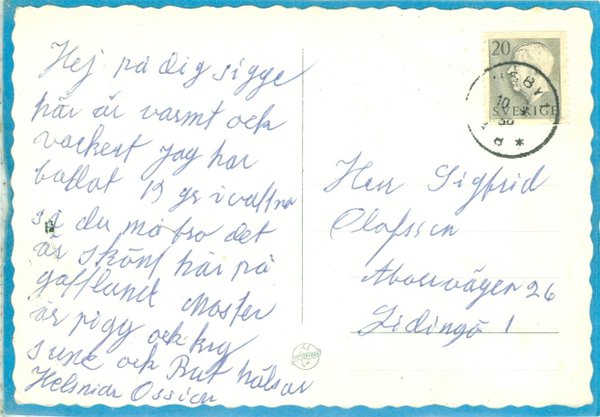 Hej på dig sigge
här är varmt ock
vackert jag har
badat 19 gr i vattnet
så du må tro det
är skönt här på
gottland Moster
är pigg ock kry
sune ock Rut hälsar
Helsnior Ossian
20
SVERIGE
Herr Sigfrid
Olofsson
26
Lidingö 1